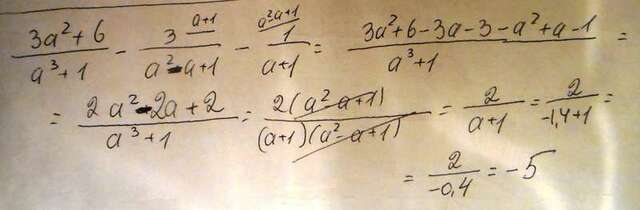 (3a²+6)/(a³+1) - 3/(a²-a+1) ^(a+1) - 1/(a+1) ^(a²-a+1) = (3a²+6-3a-3-a²+a-1)/(a³+1) =
= (2a²-2a+2)/(a³+1) = 2(a²-a+1)/((a+1)(a²-a+1)) = 2/(a+1) = 2/(-1,4+1) =
= 2/(-0,4) = -5